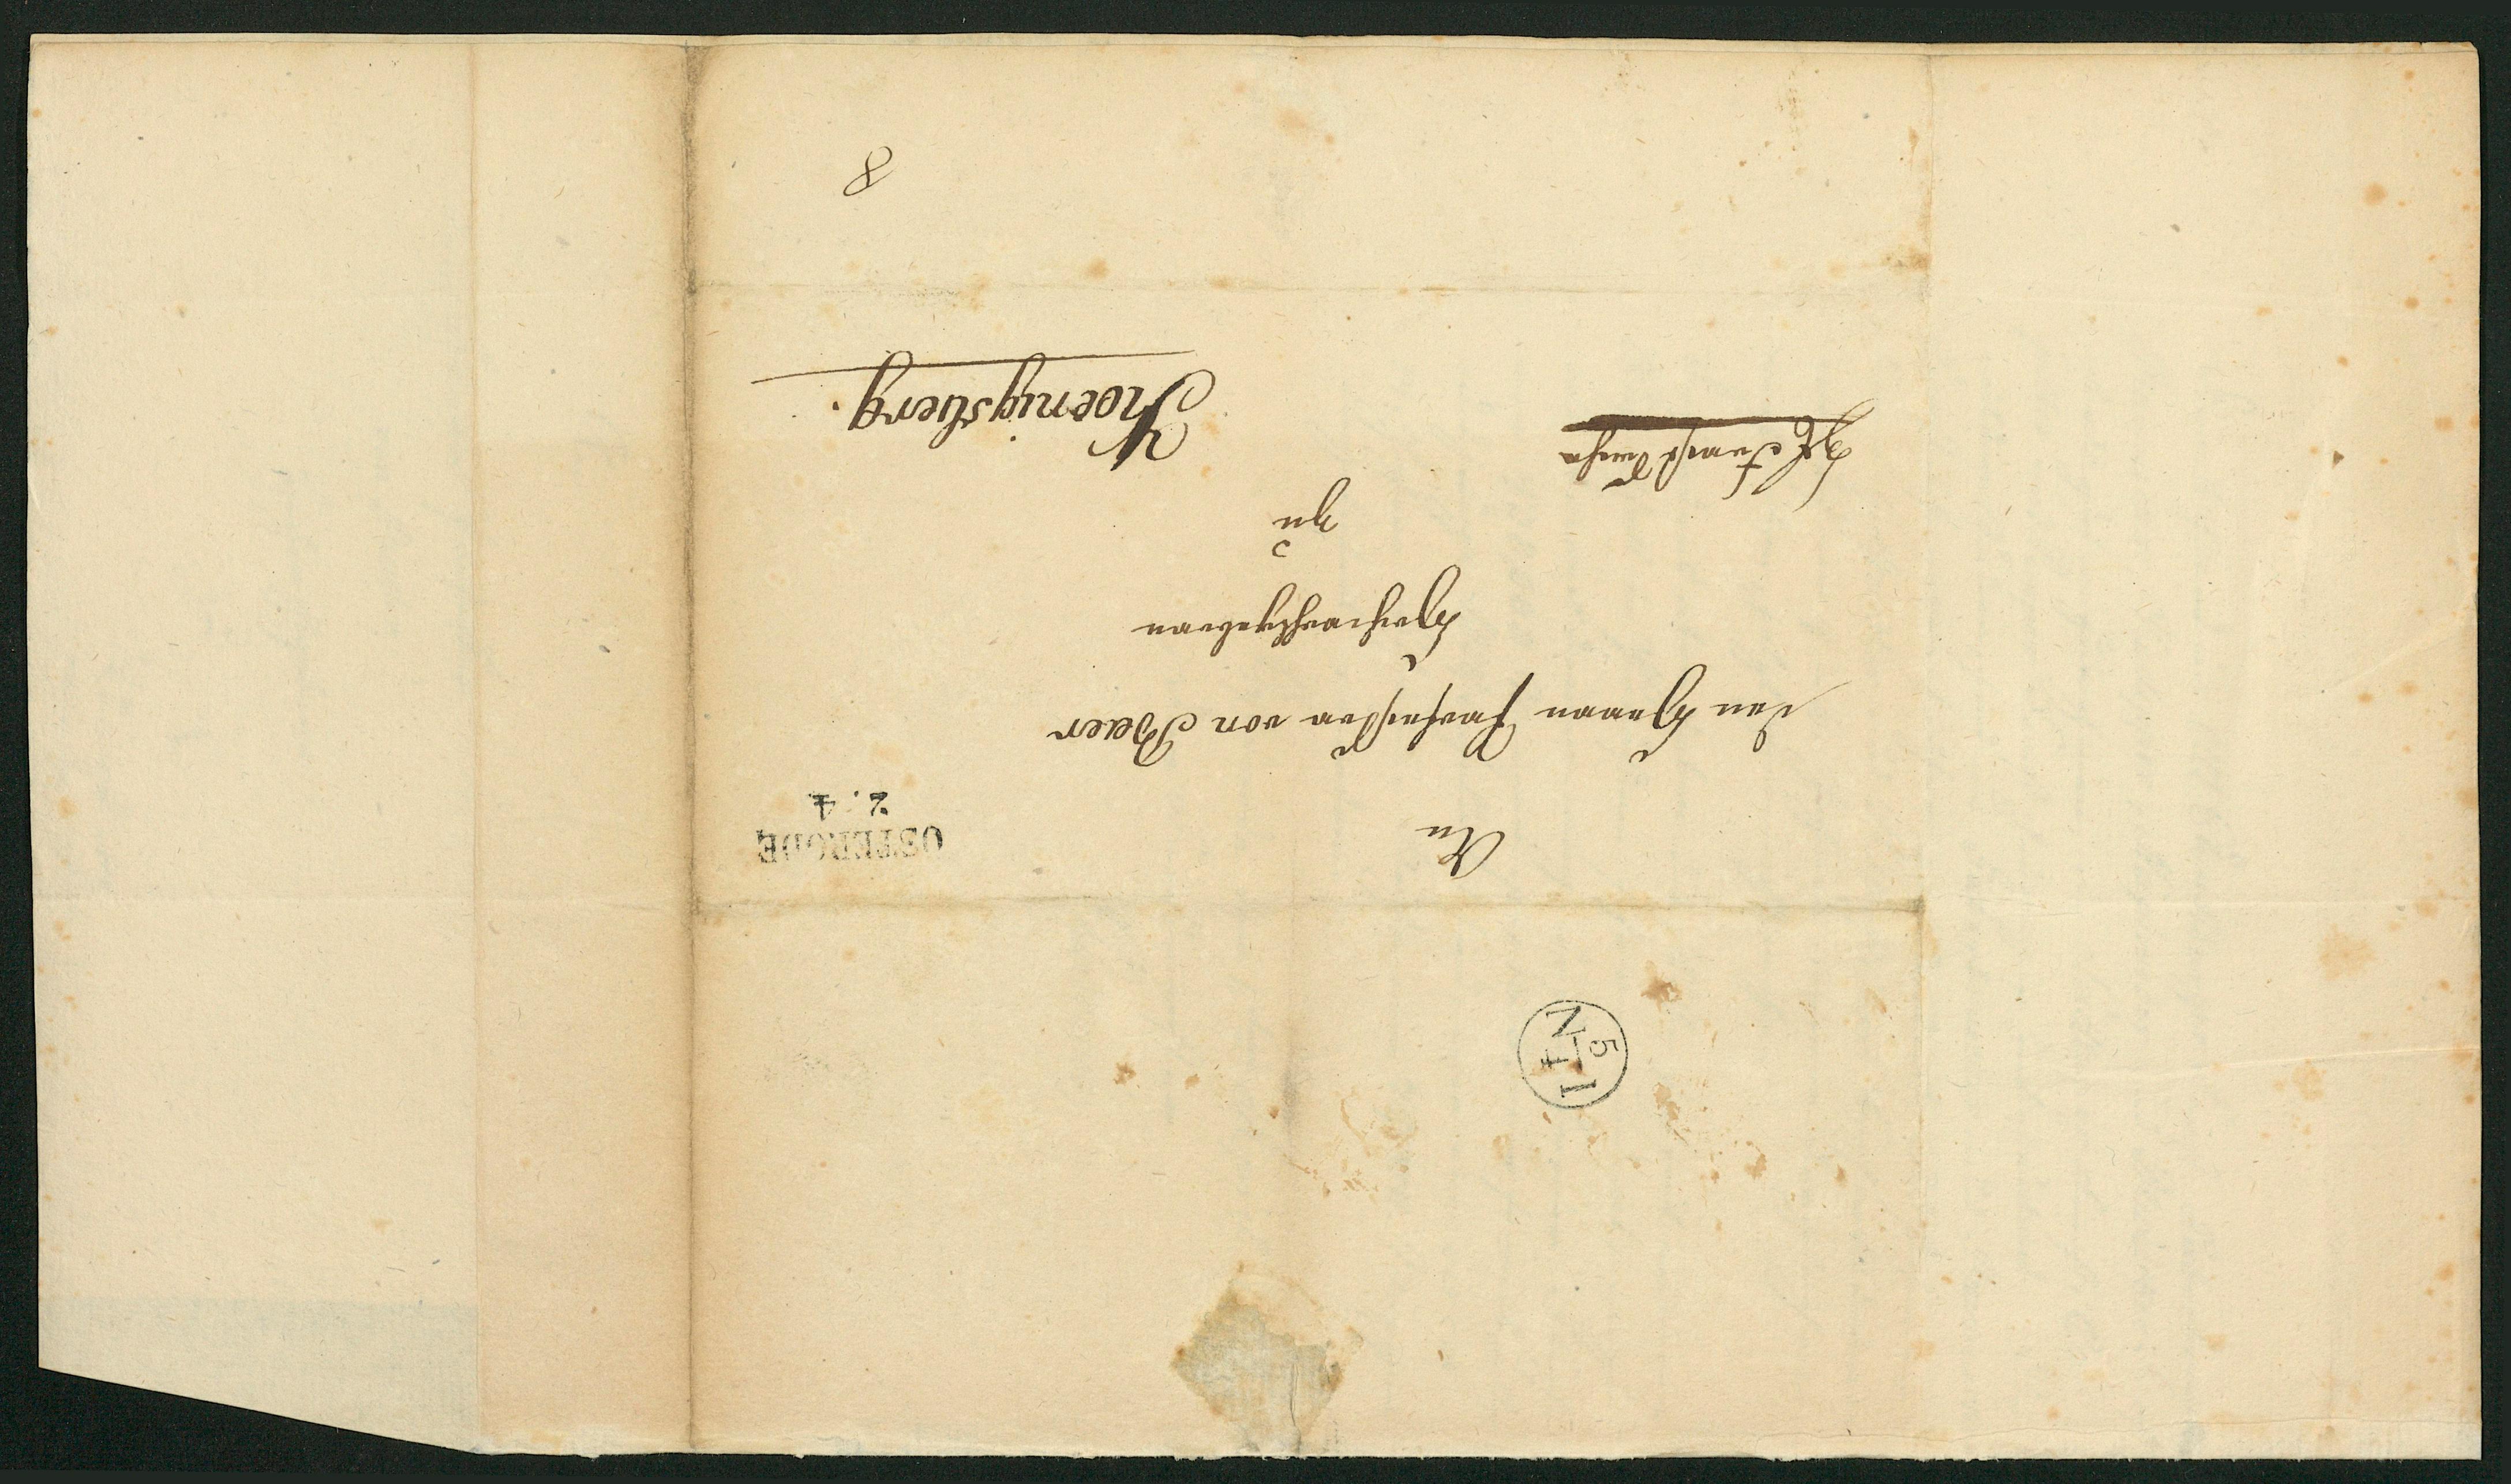 OSTERODE
2. 4
An
den Herrn Professor von Baer
Hochwohlgeboren
zu
Koenigsberg.
8
N 5/4 I